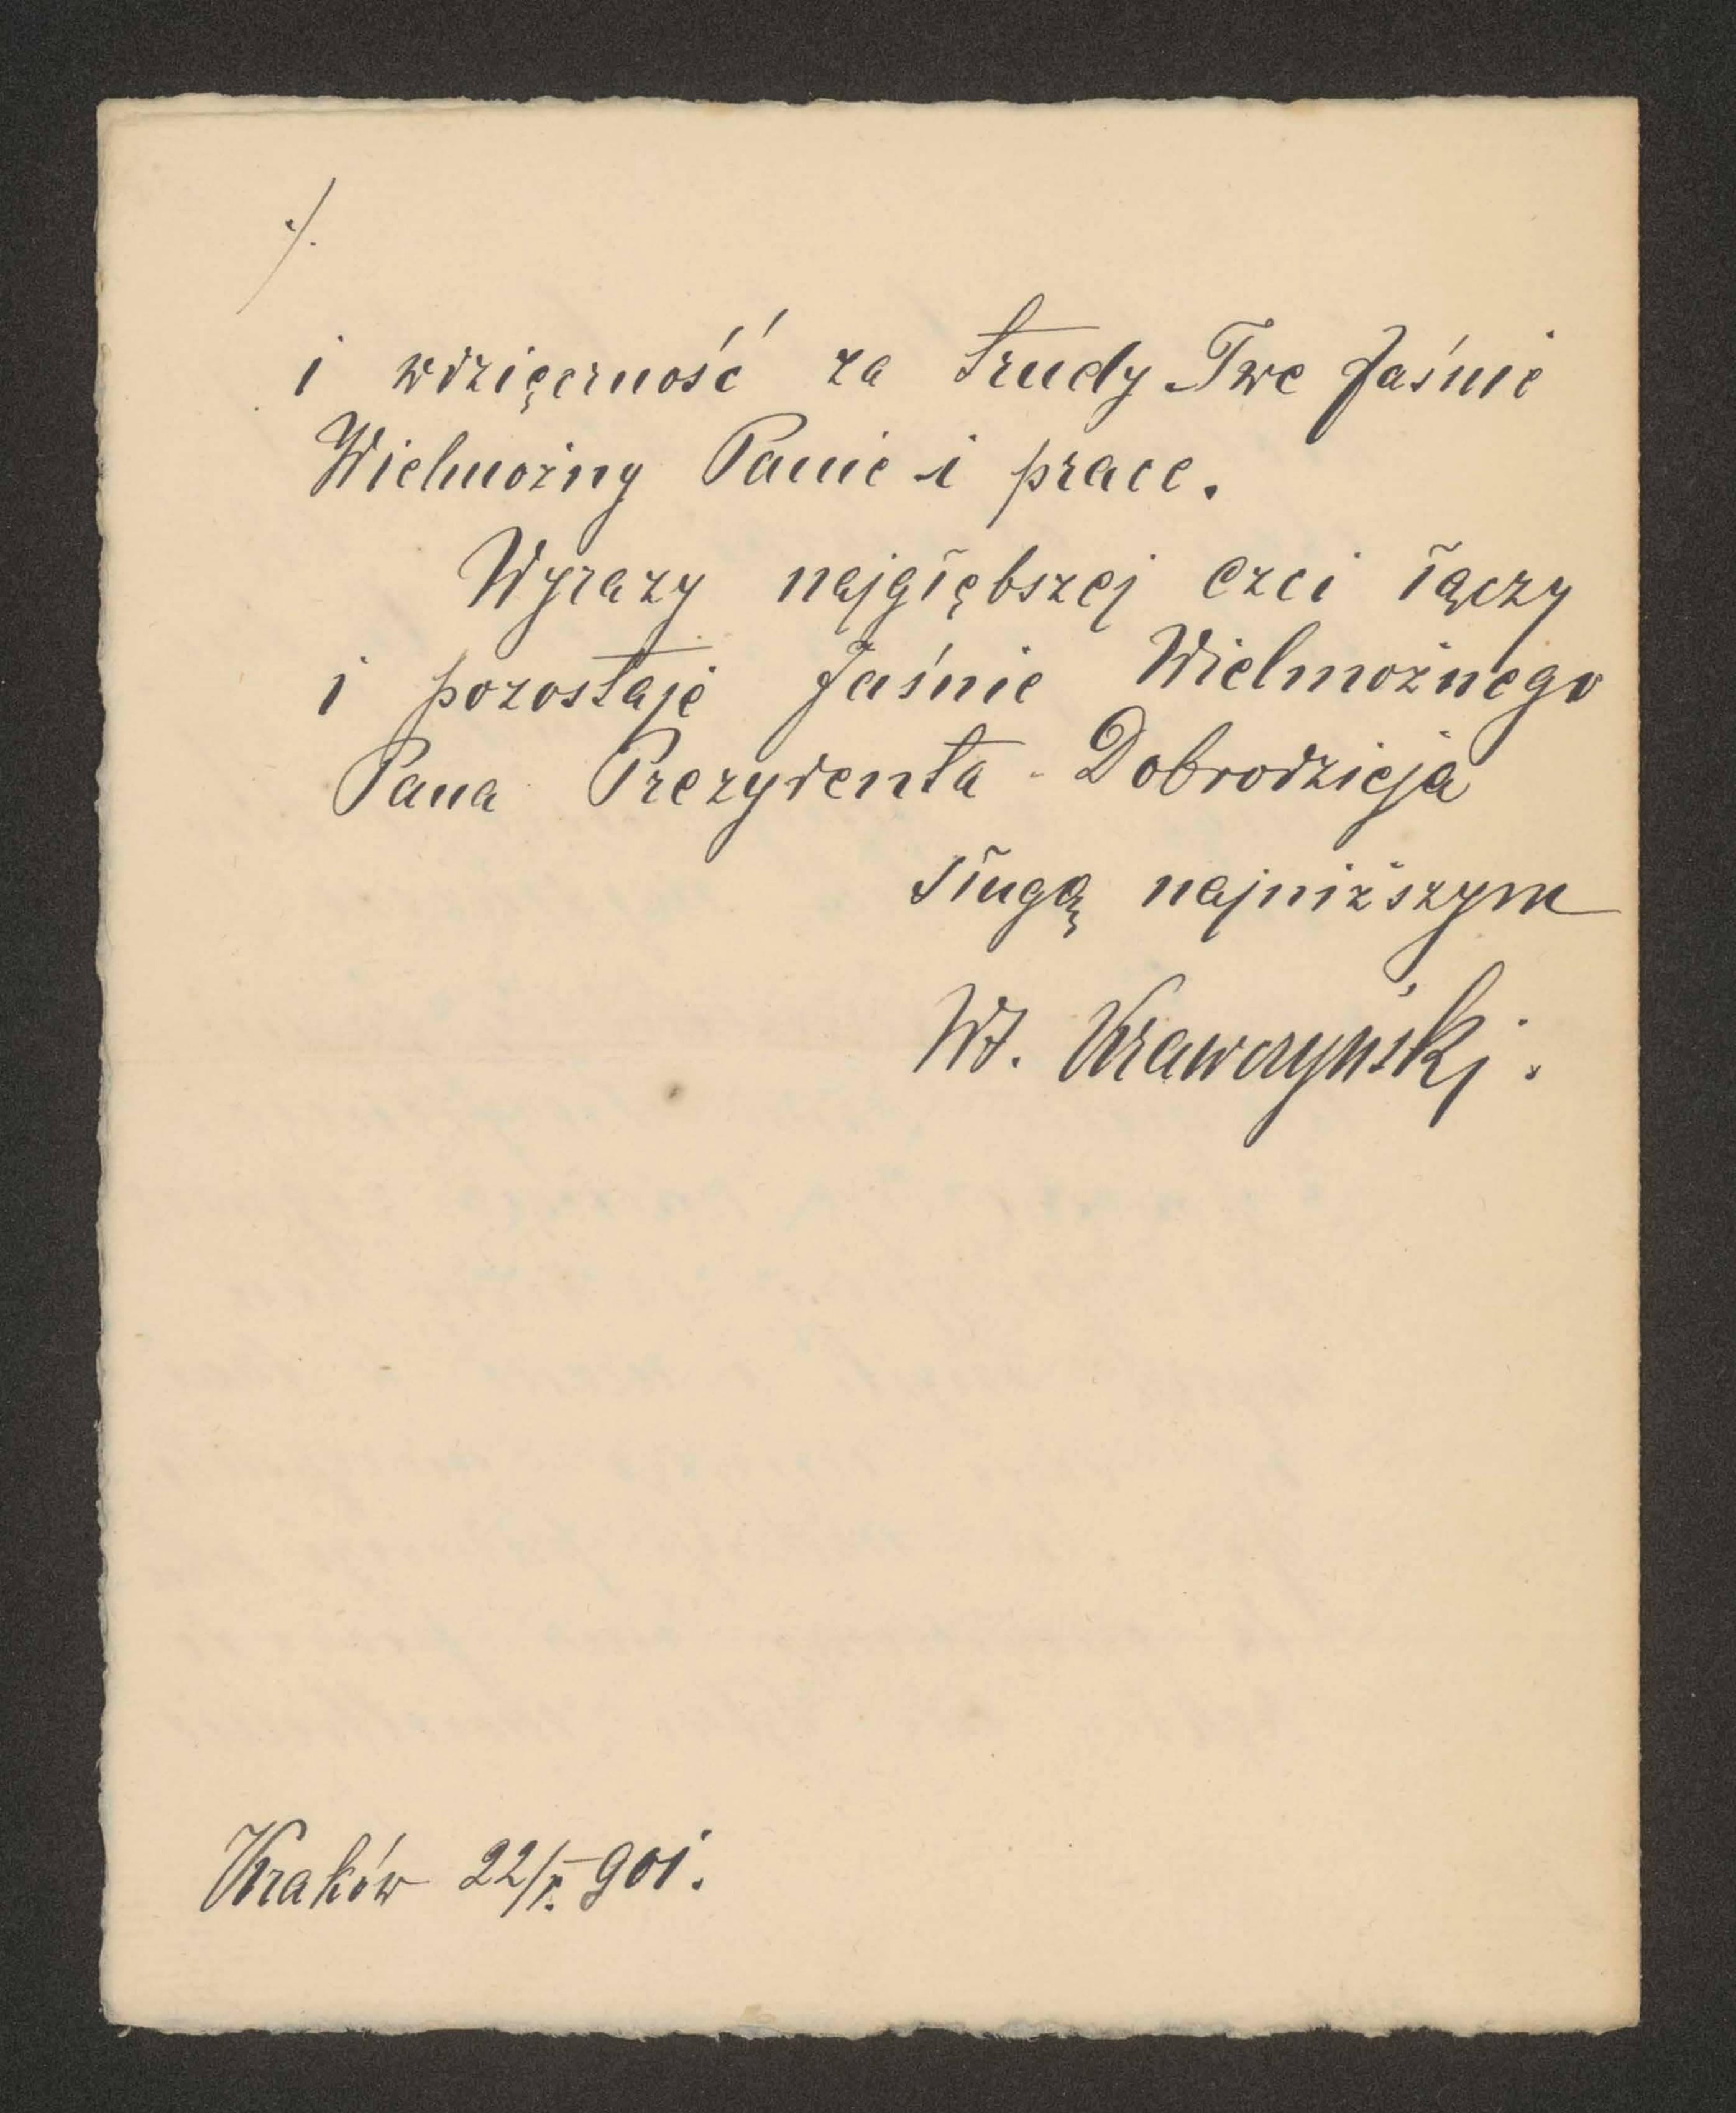 ./.
i wdzięczność za trudy Twe Jaśnie
Wielmożny Panie i prace.
Wyrazy najgłębszej czci łączy
i pozostaje Jaśnie Wielmożnego
Pana Prezydenta - Dobrodzieja
sługą najniższym
Wł. Krawczyński.
Kraków 22/I. 901.